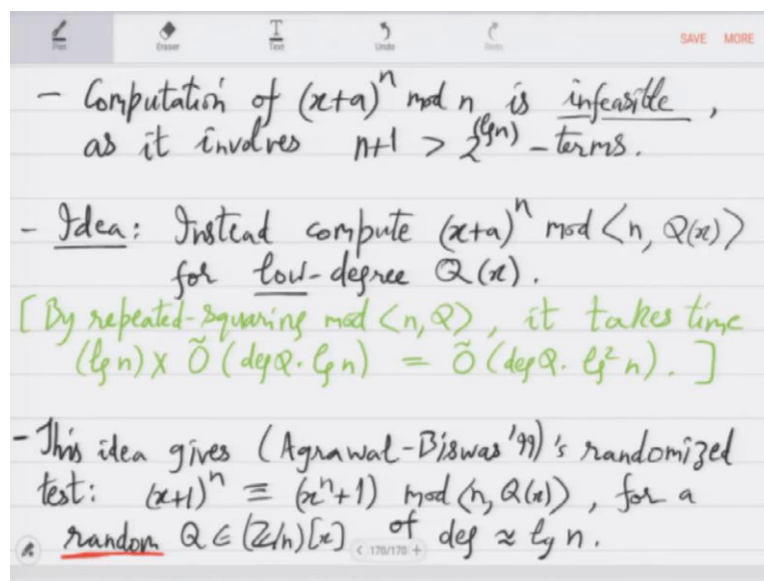 Pen Eraser Text Undo Redo SAVE MORE
- Computation of (x+a)^n mod n is infeasible,
as it involves n+1 > 2^(lg n) - terms.
- Idea: Instead compute (x+a)^n mod <n, Q(x)>
for low-degree Q(x).
[By repeated-squaring mod <n, Q>, it takes time
(lg n) x Õ(deg Q · lg n) = Õ(deg Q · lg² n).]
- This idea gives (Agrawal-Biswas '99)'s randomized
test: (x+1)^n ≡ (x^n+1) mod <n, Q(x)>, for a
random Q ∈ (Z/n)[x] of deg ≈ lg n.
< 170/170 +